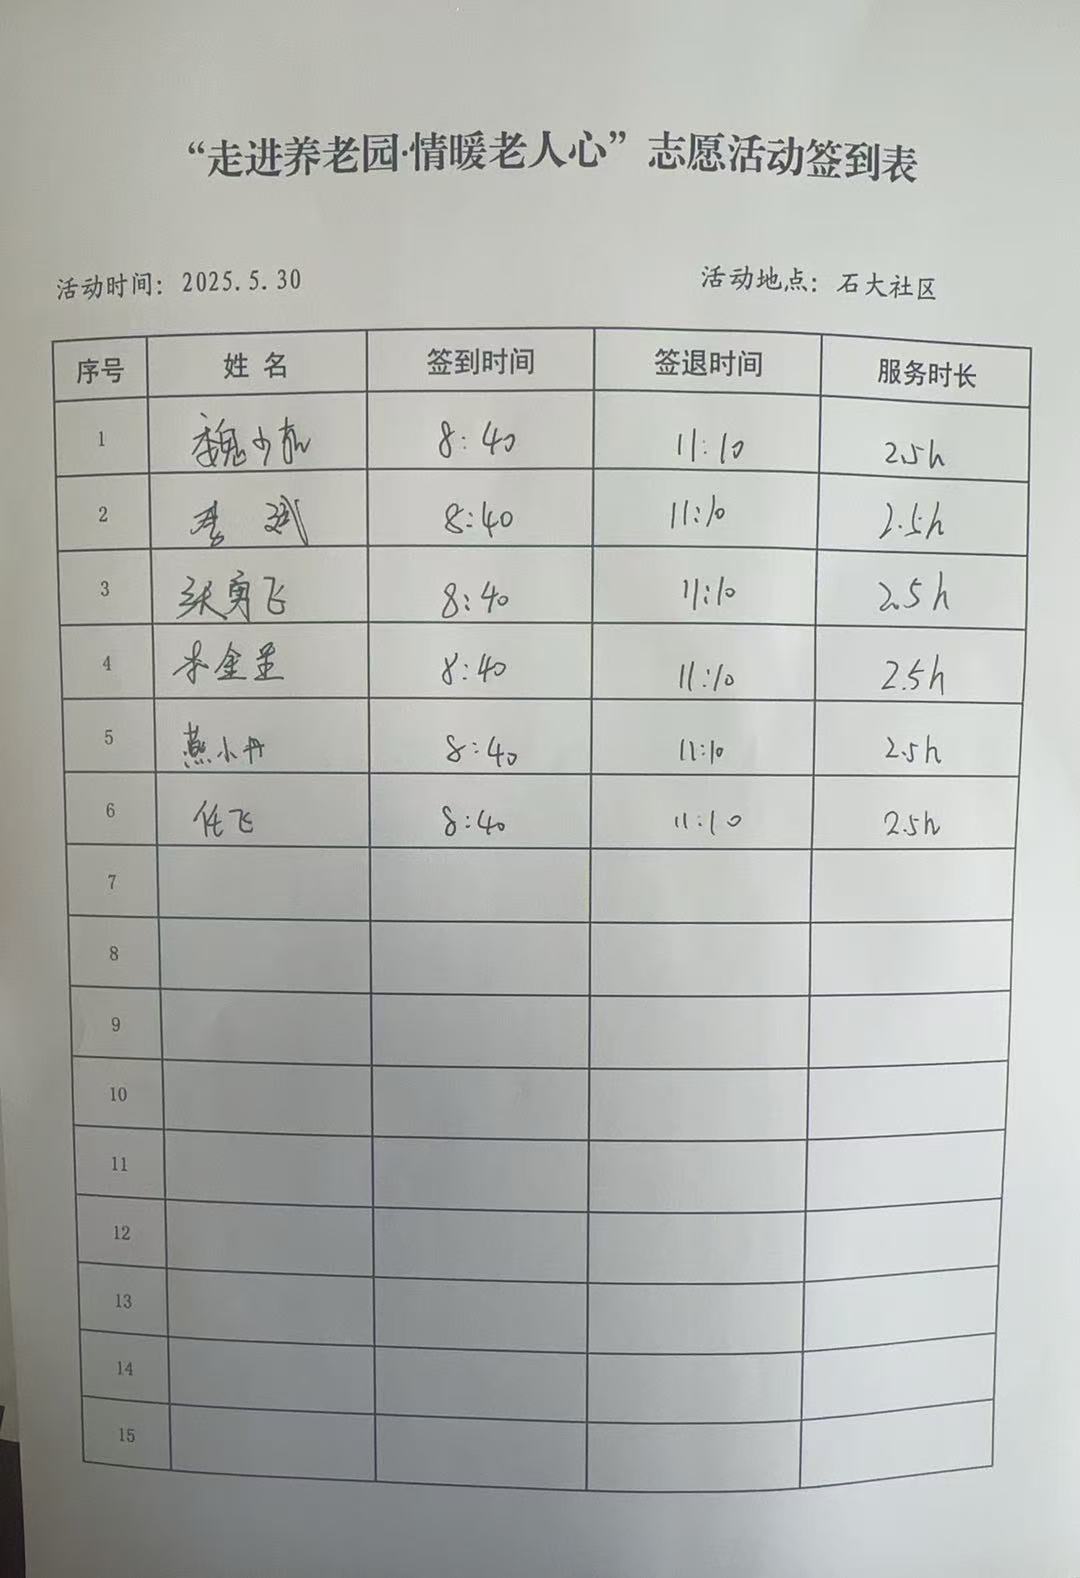 “走进养老园·情暖老人心”志愿活动签到表
活动时间：2025.5.30 活动地点：石大社区
序号 姓 名 签到时间 签退时间 服务时长
1 魏少 8:40 11:10 2.5h
2 斌 8:40 11:10 2.5h
3 张勇飞 8:40 11:10 2.5h
4 金 8:40 11:10 2.5h
5 燕小丹 8:40 11:10 2.5h
6 任飞 8:40 11:10 2.5h
7
8
9
10
11
12
13
14
15